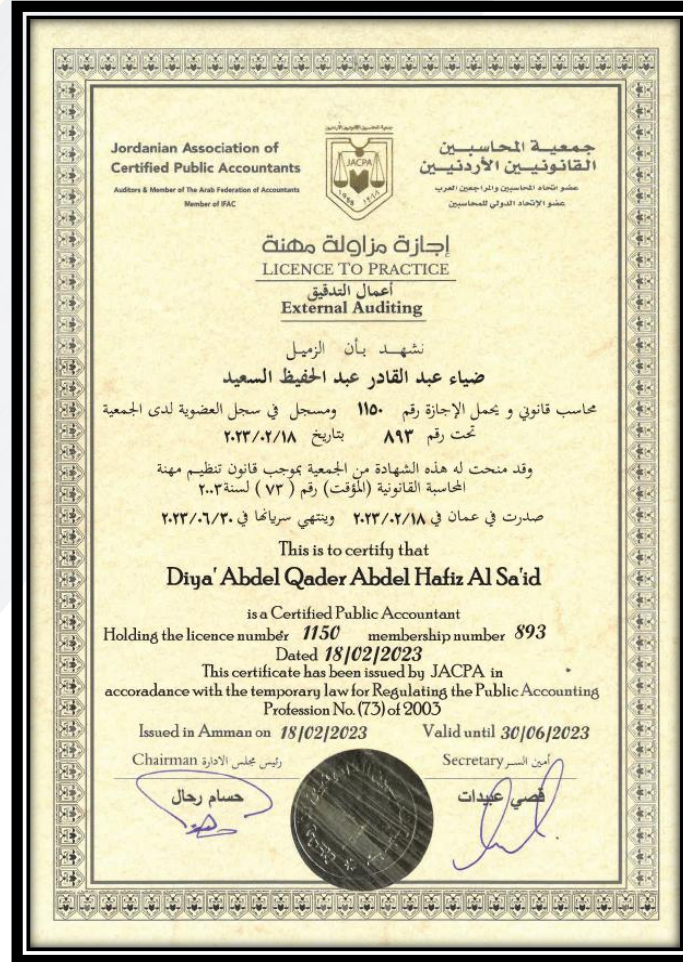 جمعية المحاسبين القانونيين الأردنيين
Jordanian Association of
Certified Public Accountants
Auditors & Member of The Arab Federation of Accountants
Member of IFAC
JACPA
جمعية المحاسبين
القانونيين الأردنيين
عضو اتحاد المحاسبين والمراجعين العرب
عضو الإتحاد الدولي للمحاسبين
إجازة مزاولة مهنة
LICENCE TO PRACTICE
أعمال التدقيق
External Auditing
نشهد بأن الزميل
ضياء عبد القادر عبد الحفيظ السعيد
محاسب قانوني و يحمل الإجازة رقم ١١٥٠ ومسجل في سجل العضوية لدى الجمعية
تحت رقم ٨٩٣ بتاريخ ٢٠٢٣/٠٢/١٨
وقد منحت له هذه الشهادة من الجمعية بموجب قانون تنظيم مهنة
المحاسبة القانونية (المؤقت) رقم ( ٧٣ ) لسنة ٢٠٠٣
صدرت في عمان في ٢٠٢٣/٠٢/١٨ وينتهي سريانها في ٢٠٢٣/٠٦/٣٠
This is to certify that
Diya' Abdel Qader Abdel Hafiz Al Sa'id
is a Certified Public Accountant
Holding the licence number 1150 membership number 893
Dated 18/02/2023
This certificate has been issued by JACPA in
accoradance with the temporary law for Regulating the Public Accounting
Profession No. (73) of 2003
Issued in Amman on 18/02/2023 Valid until 30/06/2023
Chairman رئيس مجلس الادارة
Secretary أمين السر
حسام رحال
قصي عبيدات